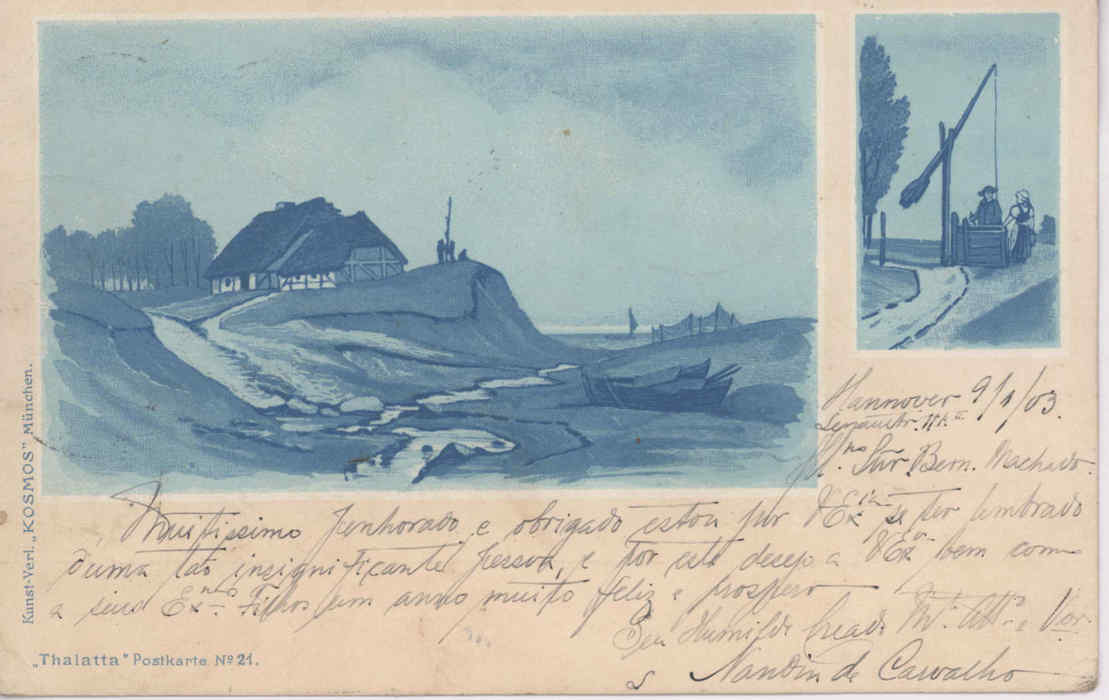 Hannover 9/1/03.
Snr. Bern. Machado.
Muitissimo penhorado e obrigado estou por VEx.cia se ter lembrado
duma tão insignificante pessoa, e por este desejo a VEx.a bem como
a seus Ex.mos Filhos um anno muito feliz e prospero
Seu Humilde Creado Mto. Att.o e Ver.
de Carvalho
Kunst-Verl. „KOSMOS” München.
„Thalatta” Postkarte No 21.